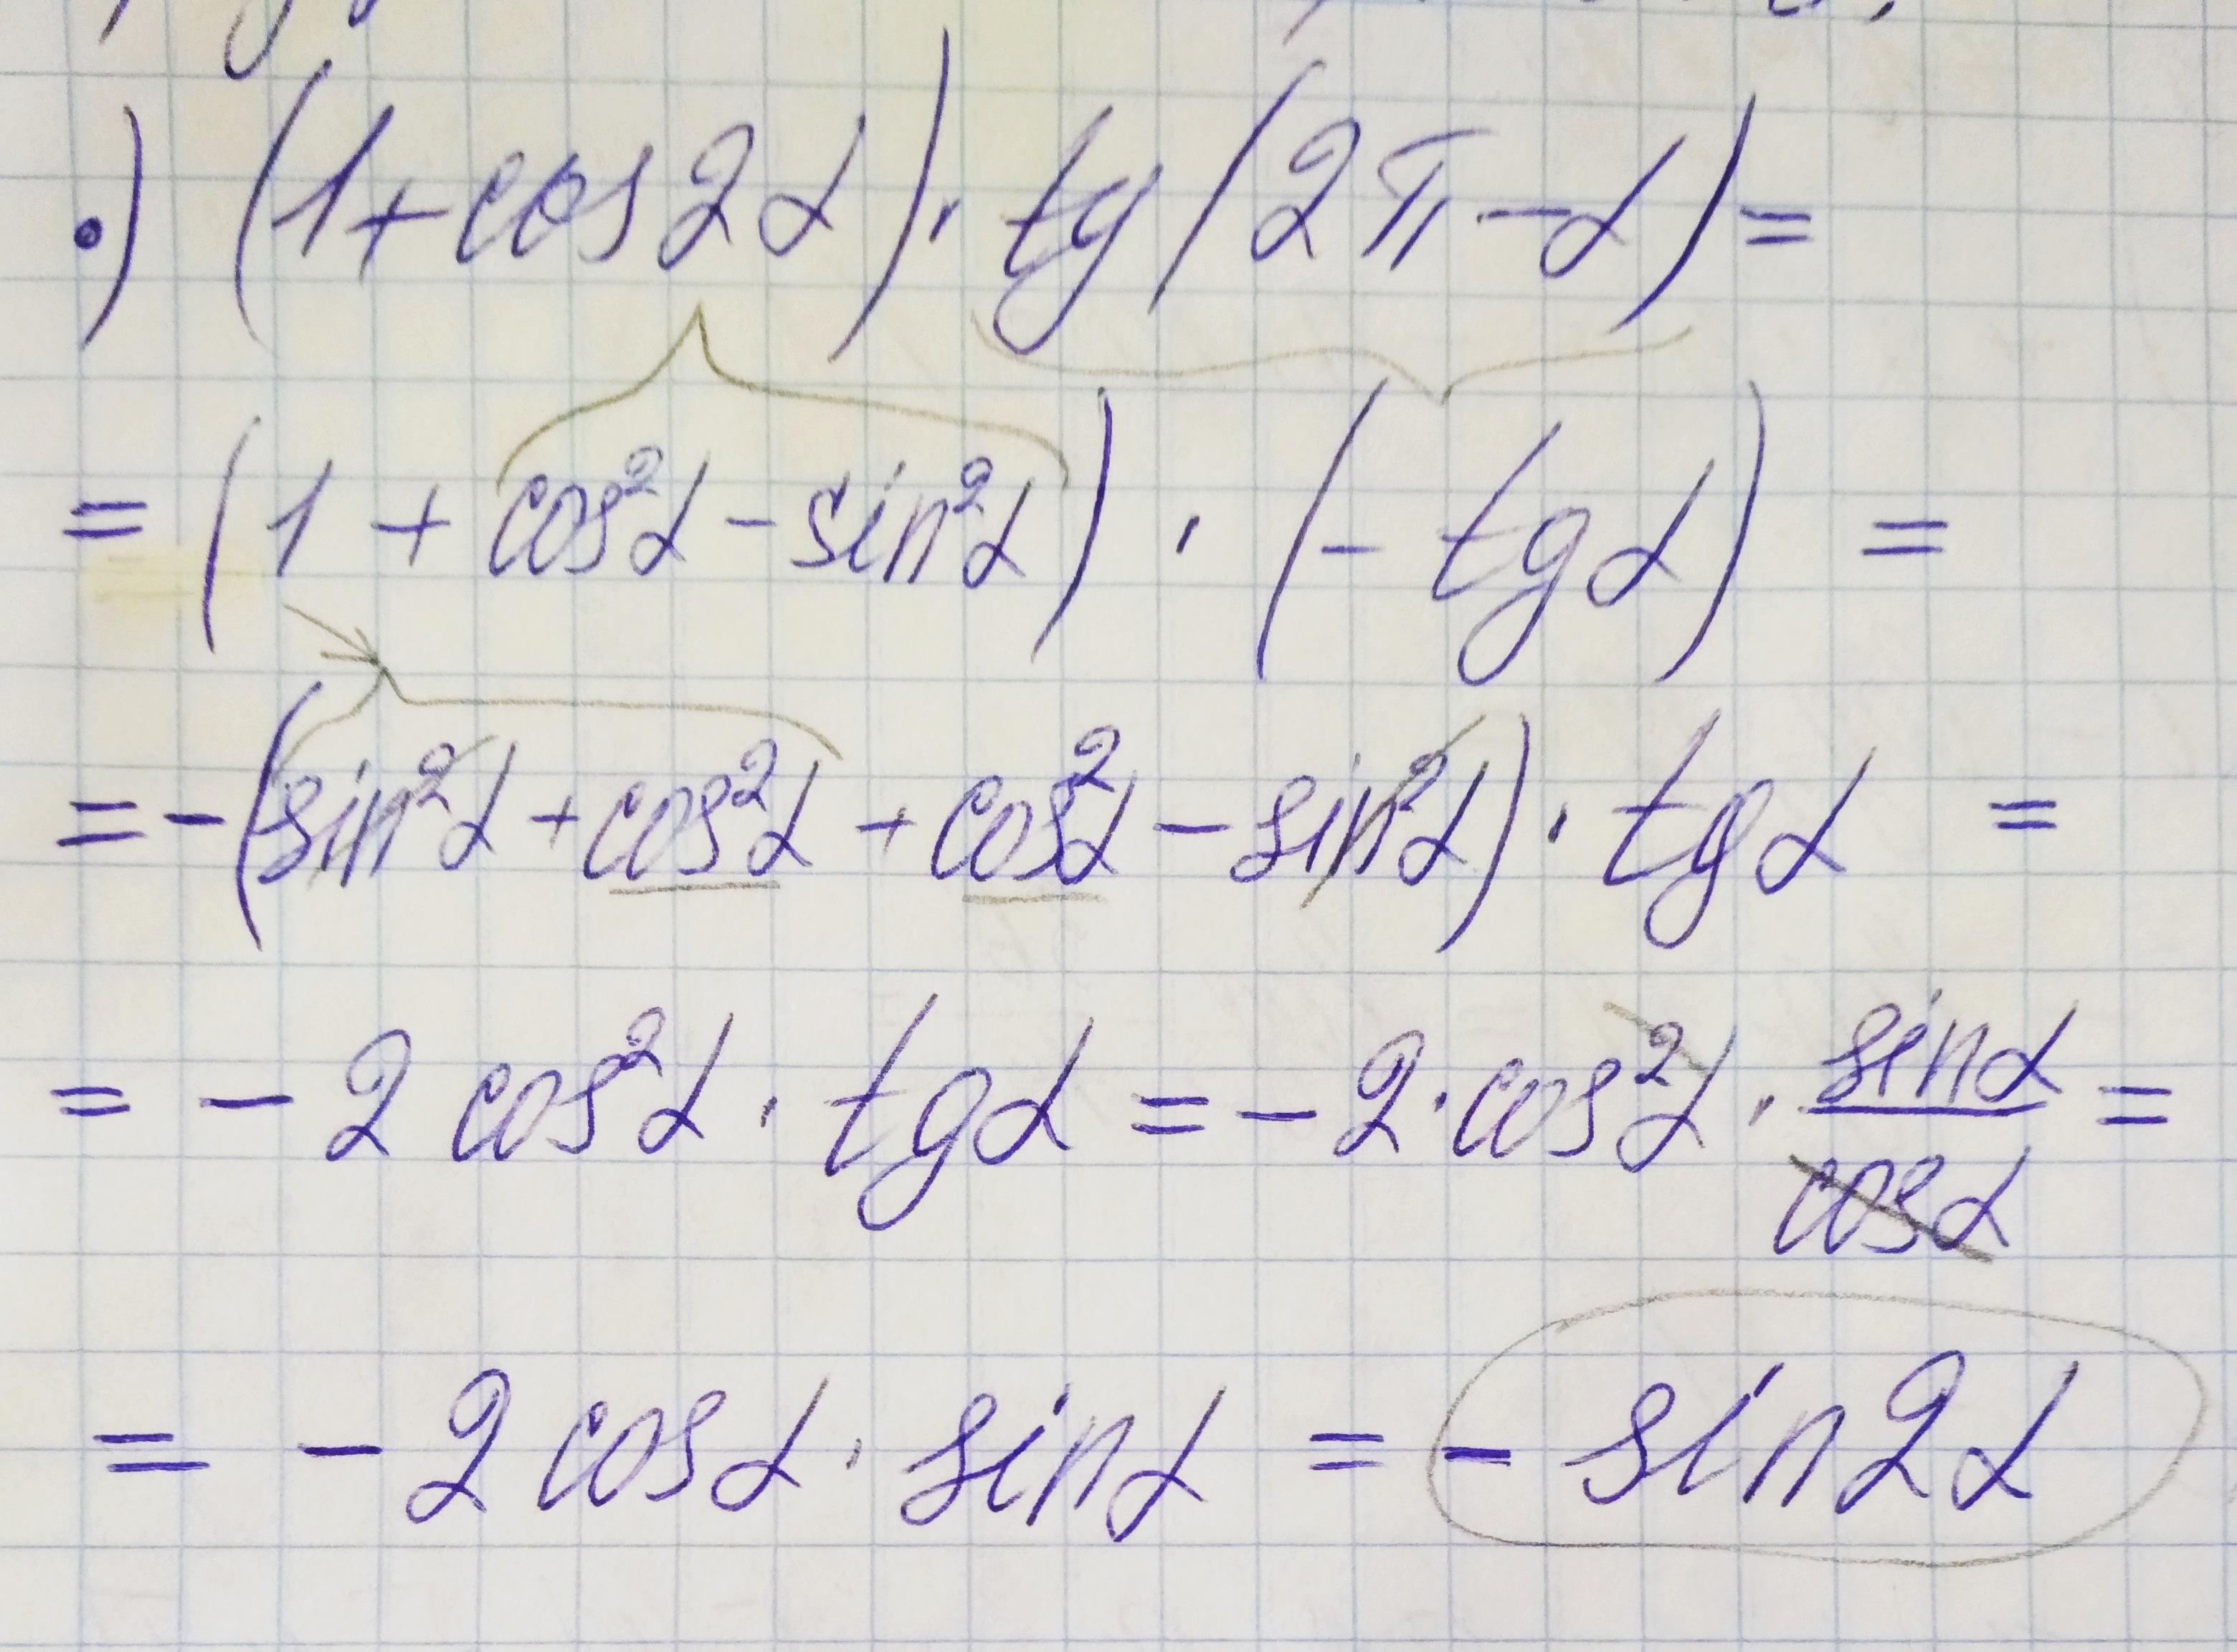 •) (1+cos2α)·tg(2π-α)=
=(1+cos²α-sin²α)·(-tgα)=
=-(sin²α+cos²α+cos²α-sin²α)·tgα=
=-2cos²α·tgα=-2·cos²α·sinα/cosα=
=-2cosα·sinα=-sin2α